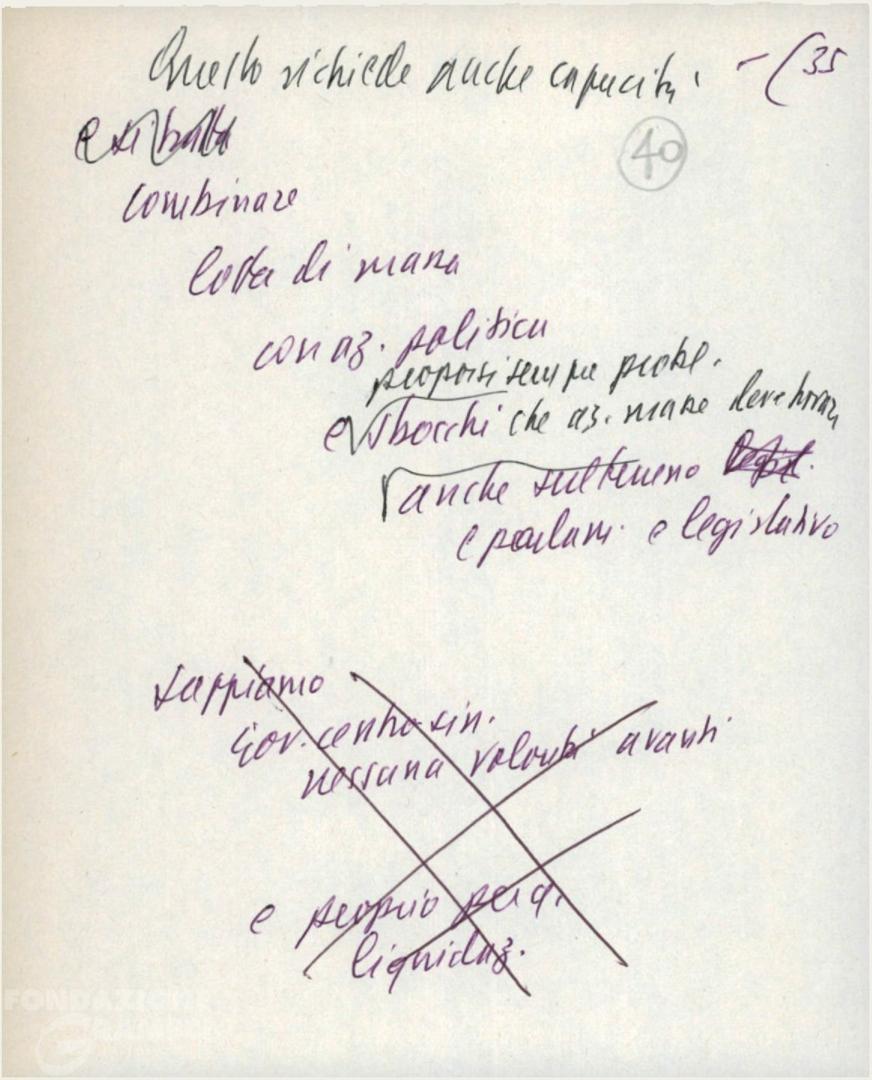 Questo richiede anche capacità – (35
e si batta
40
combinare
lotta di massa
con az. politica
proporsi sempre probl.
e sbocchi che az. masse deve trovare
anche sul terreno legisl.
e parlam. e legislativo
sappiamo
gov. centro sin.
nessuna volontà avanti
e proprio per q.
liquidaz.
FONDAZIONE
GRAMSCI